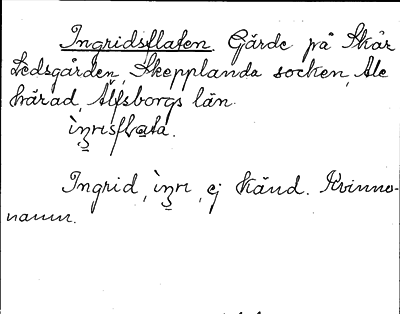 Ingridsflaten. Gärde på Skår
Ledsgården, Skepplanda socken, Ale
härad, Älfsborgs län.
ìŋrısflata.
Ingrid, ìŋrı, ej känd. Kvinno-
namn.